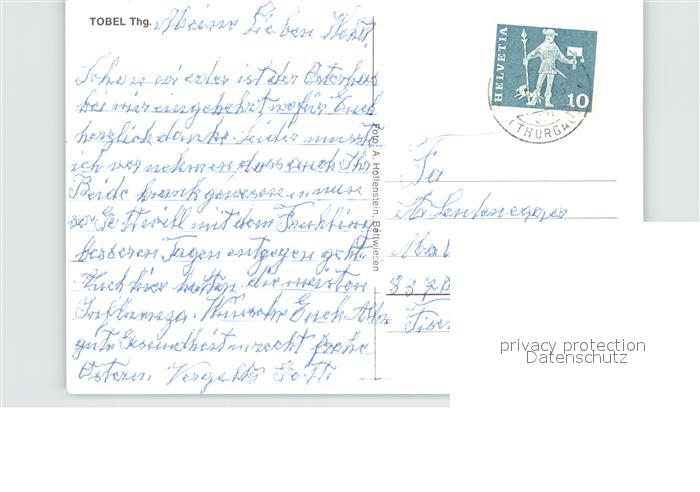 TOBEL Thg.
Meine Lieben
Schon wieder ist der Osterhas
bei mir eingekehrt, wofür Euch
herzlich danke. Leider musst
ich vernehmen, dass auch Ihr
Beide krank gewesen
mit dem Frühling
besseren Tagen entgegen geht.
Auch hier hatten die meisten
Influenza. Wünsche Euch Allen
gute Gesundheit u. recht frohe
Ostern. Vergelts Gott.
Foto: A. Hoffenstein, Bettwiesen
HELVETIA
10
(THURGAU)
837
privacy protection
Datenschutz